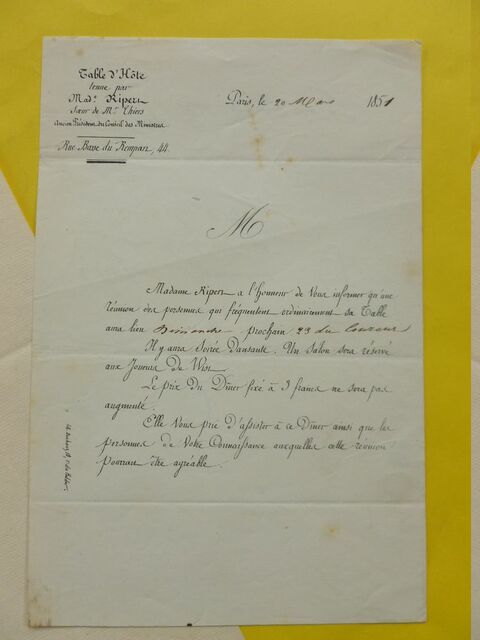 Table d'Hôte
tenue par
Mad.e Ripert
Sœur de Mr. Thiers
Ancien Président du Conseil des Ministres
Rue Basse du Rempart, 44.
Paris, le 20 Mars 1851
M
Madame Ripert a l'honneur de Vous informer qu'une
réunion des personnes qui fréquentent ordinairement sa Table
aura lieu Dimanche prochain 23 du Courant
Il y aura Soirée dansante. Un Salon sera réservé
aux Joueurs de Wist.
Le prix du Dîner fixé à 3 francs ne sera pas
augmenté.
Elle Vous prie d'assister à ce Dîner ainsi que les
personnes de Votre Connaissance auxquelles cette réunion
pourrait être agréable.